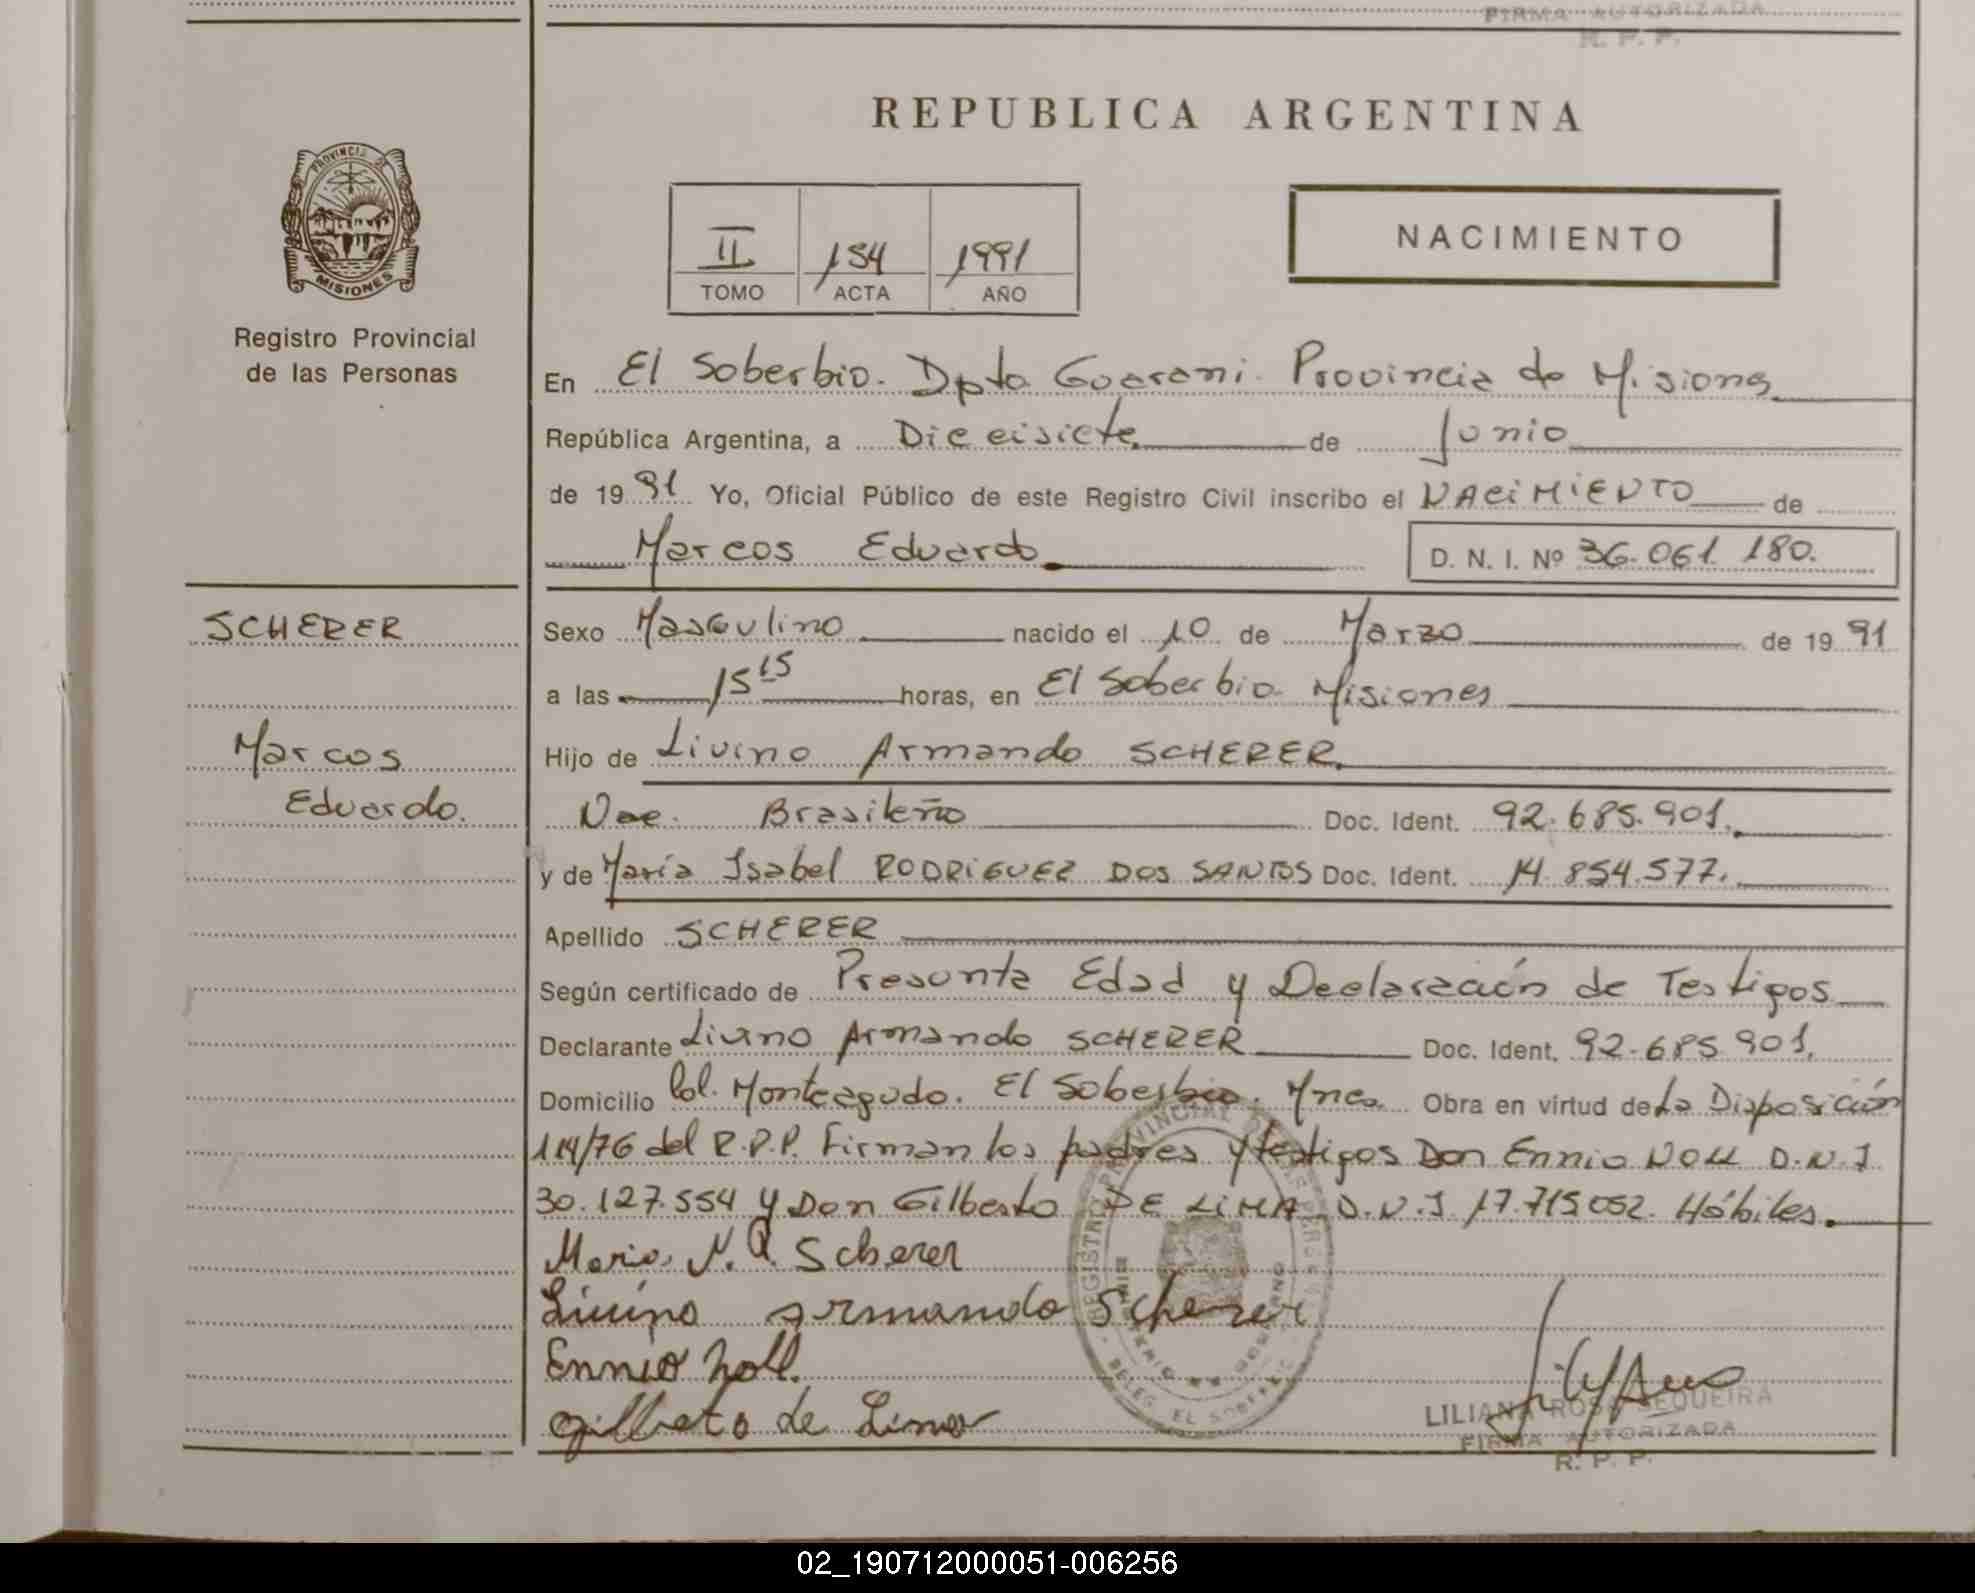 FIRMA AUTORIZADA
R. P. P.
REPUBLICA ARGENTINA
PROVINCIA DE
MISIONES
Registro Provincial
de las Personas
II 154 1991
TOMO ACTA AÑO
NACIMIENTO
En El Soberbio. Dpto. Guarani. Provincia de Misiones
República Argentina, a Dieeisiete de Junio
de 1991 Yo, Oficial Público de este Registro Civil inscribo el NACIMIENTO de
Marcos Eduardo D. N. I. Nº 36.061.180.
SCHERER
Marcos
Eduardo.
Sexo Masculino nacido el 10 de Marzo de 1991
a las 15 15 horas, en El Soberbio. Misiones
Hijo de Livino Armando SCHERER.
Nac. Brasileño Doc. Ident. 92.685.901.
y de María Isabel RODRIGUEZ DOS SANTOS Doc. Ident. 14.854.577.
Apellido SCHERER
Según certificado de Presunta Edad y Declaración de Testigos
Declarante Livino Armando SCHERER Doc. Ident. 92.685.901.
Domicilio Col. Monteagudo. El Soberbio. Mnes. Obra en virtud de La Disposición
114/76 del R.P.P. Firman los padres y testigos Don Ennio NOLL D.N.I
30.127.554 y Don Gilberto DE LIMA D.N.I 17.715052. Hábiles.
Scherer
Livino armando Scherer
Ennio Noll.
Gilberto de Lima
REGISTRO PROVINCIAL DE LAS PERSONAS
DELEG. EL SOBERBIO
LILIANA ROSA SEQUEIRA
FIRMA AUTORIZADA
R. P. P.
02_190712000051-006256